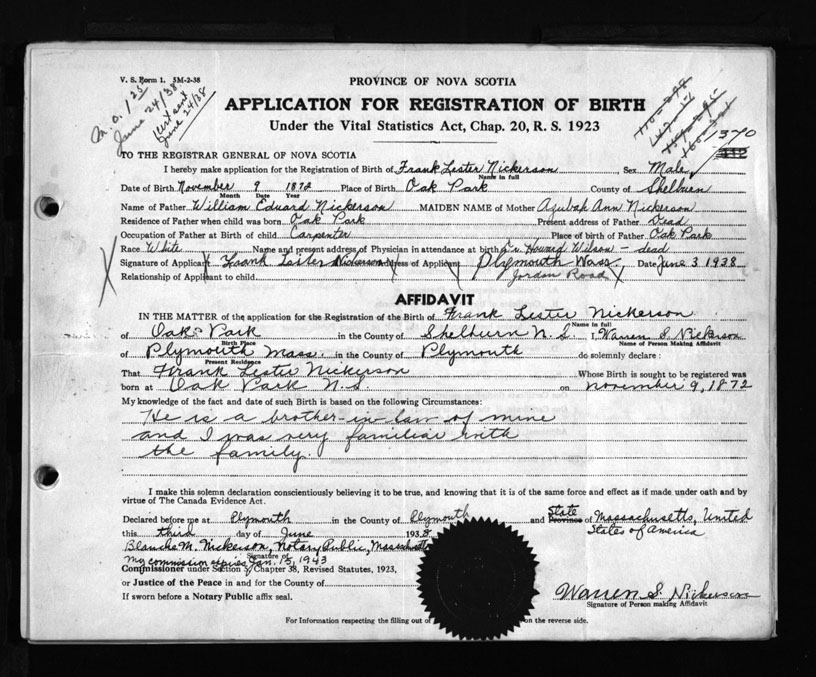 V. S. Form 1. 5M-2-38
PROVINCE OF NOVA SCOTIA
m.o. 1 25
June 24/38
Cert sent
June 24/38
APPLICATION FOR REGISTRATION OF BIRTH
Under the Vital Statistics Act, Chap. 20, R. S. 1923
1370
TO THE REGISTRAR GENERAL OF NOVA SCOTIA
I hereby make application for the Registration of Birth of Frank Lester Nickerson Sex Male
Name in full
Date of Birth November 9 1872 Place of Birth Oak Park County of Shelburn
Month Date Year
Name of Father William Edward Nickerson MAIDEN NAME of Mother Azubah Ann Nickerson
Residence of Father when child was born Oak Park Present address of Father Dead
Occupation of Father at Birth of child Carpenter Place of birth of Father Oak Park
Race White Name and present address of Physician in attendance at birth Dr. Howard Wilson - dead
Signature of Applicant Frank Lester Nickerson Address of Applicant Plymouth Mass. Date June 3 1938
Relationship of Applicant to child Jordan Road
AFFIDAVIT
IN THE MATTER of the application for the Registration of the Birth of Frank Lester Nickerson
Name in full
of Oak Park in the County of Shelburn N.S I, Warren S. Nickerson
Birth Place Name of Person Making Affidavit
of Plymouth Mass. in the County of Plymouth do solemnly declare:
Present Residence
That Frank Lester Nickerson Whose Birth is sought to be registered was
born at Oak Park N.S. on November 9, 1872
My knowledge of the fact and date of such Birth is based on the following Circumstances:
He is a brother-in law of mine
and I was very familiar with
the family.
I make this solemn declaration conscientiously believing it to be true, and knowing that it is of the same force and effect as if made under oath and by
virtue of The Canada Evidence Act.
Declared before me at Plymouth in the County of Plymouth and State Province of Massachusetts, United
this third day of June 1938 States of America
Blanche M. Nickerson, Notary Public, Massachusetts
Signature of
My commission expires Jan. 15, 1943
Commissioner under Section 3, Chapter 38, Revised Statutes, 1923,
or Justice of the Peace in and for the County of
If sworn before a Notary Public affix seal.
Warren S. Nickerson
Signature of Person making Affidavit
For Information respecting the filling out of on the reverse side.